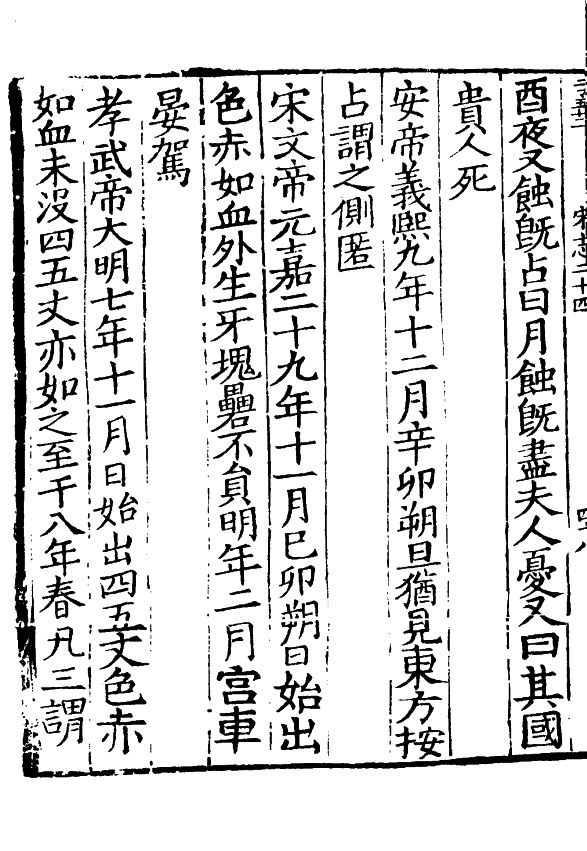 宋志二十四
酉夜又蝕旣占曰月蝕旣盡夫人憂又曰其國
貴人死
安帝義熙九年十二月辛卯朔旦猶見東方按
占謂之側匿
宋文帝元嘉二十九年十一月巳卯朔日始出
色赤如血外生牙塊礨不貟明年二月宮車
晏駕
孝武帝大明七年十一月日始出四五丈色赤
如血未沒四五丈亦如之至于八年春凡三謂